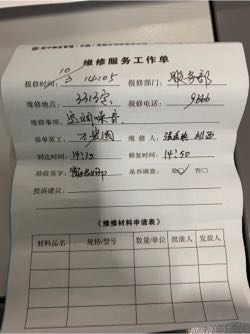 维修服务工作单
报修时间: 10/3 14:05 报修部门: 服务部
维修地点: 报修电话: 9666
维修事项: 空调噪音
接单派工: 维修人:
到达时间: 14:10 修复时间: 14:50
验收签字: 是否满意: 是☑ 否□
投诉建议:
《维修材料申请表》
材料品名 规格/型号 数量/单位 批准人 发放人